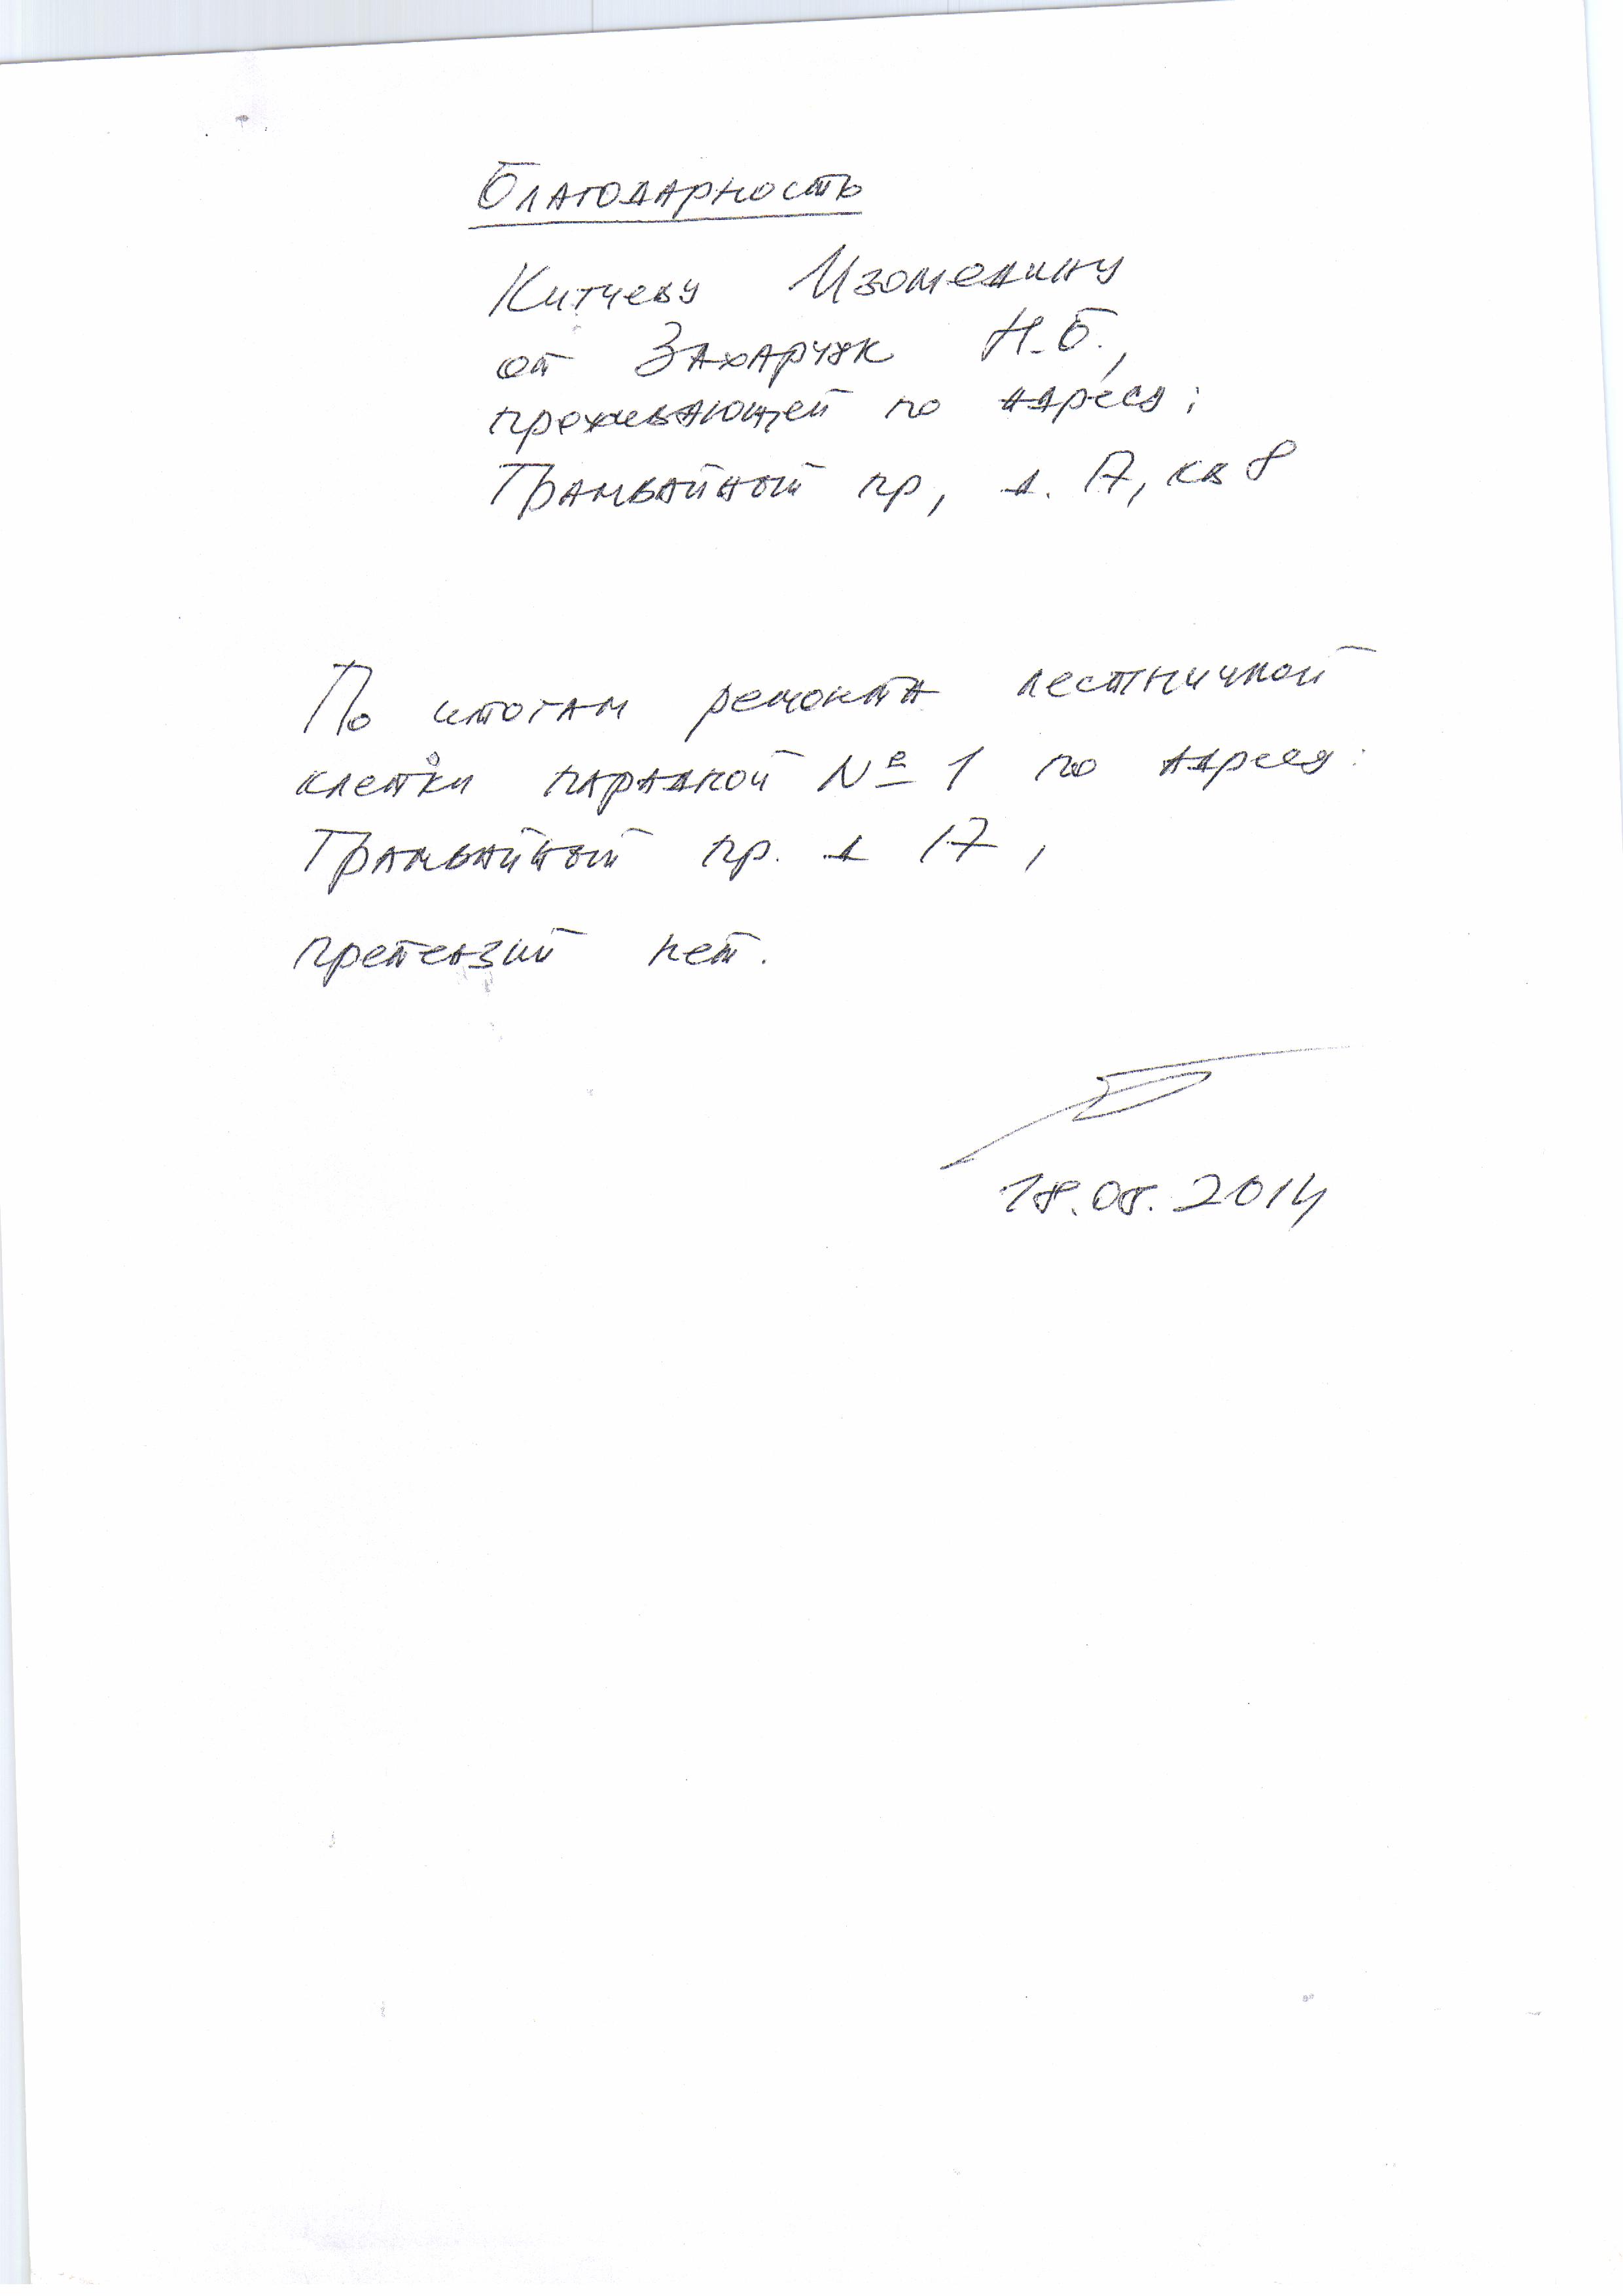 Благодарность
Китчеву Изомедину
от Захарчук Н.Б.,
проживающей по адресу:
Трамвайный пр, д. 17, кв 8
По итогам ремонта лестничной
клетки парадной № 1 по адресу:
Трамвайный пр. д 17,
претензий нет.
18.08.2014